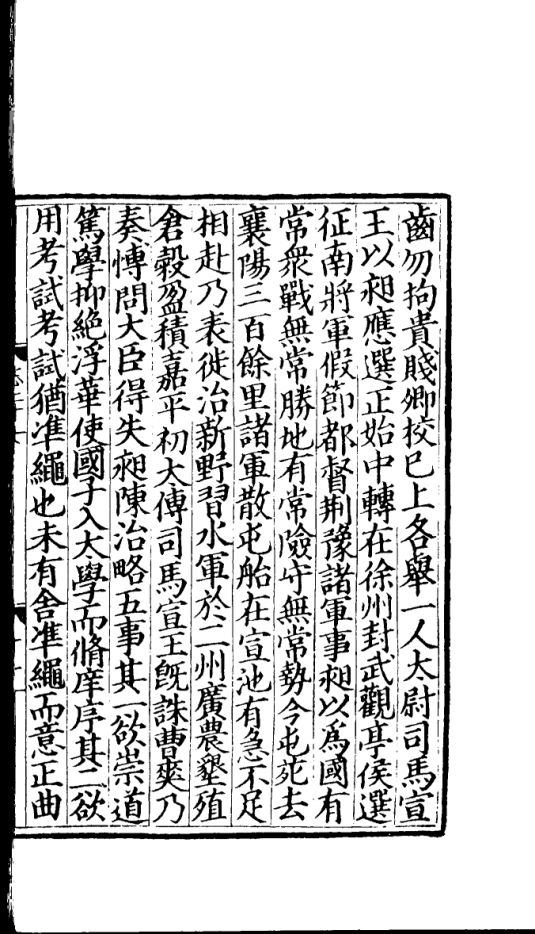 齒勿拘貴賤卿校巳上各舉一人太尉司馬宣
王以昶應選正始中轉在徐州封武觀亭侯選
征南將軍假節都督荆豫諸軍事昶以爲國有
常衆戰無常勝地有常險守無常勢今屯苑去
襄陽三百餘里諸軍散屯船在宣池有急不足
相赴乃表徙治新野習水軍於二州廣農墾殖
倉穀盈積嘉平初太傅司馬宣王旣誅曹爽乃
奏愽問大臣得失昶陳治略五事其一欲崇道
篤學抑絕浮華使國子入大學而脩庠序其二欲
用考試考試猶准繩也未有舍準繩而意正曲